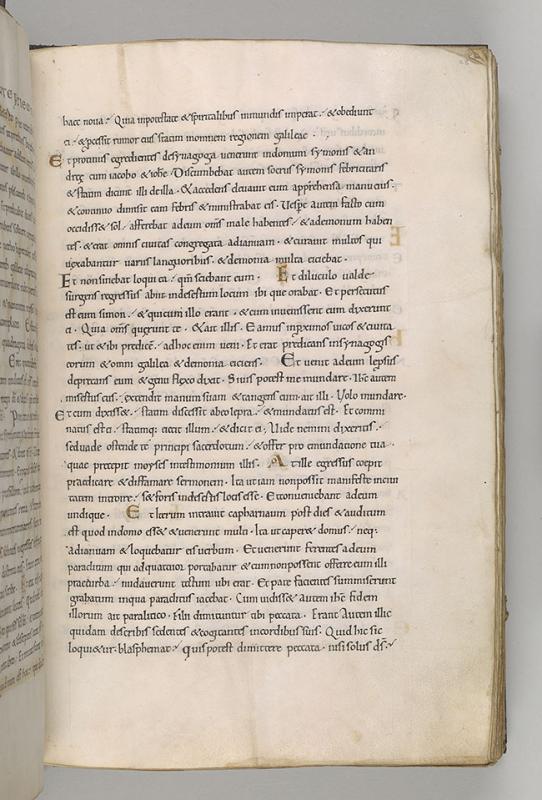 haec noua · Quia inpotestate & spiritalibus inmundis imperat · & oboediunt
ei · & pcessit rumor eius statim inomnem regionem galileae ·
Et protinus egredientes desynagoga uenerunt indomum symonis & an
dreę cum iacobo & iohe · Discumbebat autem socrus symonis febricitans
& statim dicunt illi deilla · & accedens eleuauit eam apprehensa manu eius ·
& continuo dimisit eam febris & ministrabat eis · Uespe autem facto cum
occidiss& sol · afferebat adeum oms male habentes · & ademonia haben
tes · & erat omnis ciuitas congregata adianuam · & curauit multos qui
uexabantur uariis languoribus · & demonia multa eiciebat ·
Et nonsinebat loqui ea · qm sciebant eum · Et diluculo ualde
surgens egressus abiit indesertum locum ibi que orabat · Et persecutus
est eum simon · & qui cum illo erant · & cum inuenissent eum dixerunt
ei · Quia oms querunt te · & ait illis · Eamus inproximos uicos & ciuita
tes · ut & ibi predice · adhoc enim ueni · Et erat predicans insynagogis
eorum & omni galilea & demonia eiciens · Et uenit adeum leprosus
deprecans eum & genu flexo dixit · Si uis potest me mundare · Ihc autem
misertus eius · extendit manum suam & tangens eum ait illi · Uolo mundare ·
Et cum dixiss& · statim discessit abeo lepra · & mundatus est · Et commi
natus est ei · statimq; eiecit illum · & dicit ei · Uide nemini dixeris ·
sed uade ostende te principi sacerdotum · & offer pro emundatione tua ·
quae precepit moyses intestimonium illis · At ille egressus coepit
praedicare & diffamare sermonem · Ita ut iam nonpossit manifeste inciui
tatem introire · sed foris indesertis locis esse · Et conueniebant adeum
undique · Et iterum intrauit capharnaum post dies & auditum
est quod indomo ess& & uenerunt multi · Ita ut caper& domus · neq;
adianuam & loquebatur eis uerbum · Et uenerunt ferentes adeum
paraliticum qui aquattuor portabatur & cum nonpossent offerre eum illi
praeturba · nudauerunt tectum ubi erat · Et pate facientes summiserunt
grabatum inquo paraliticus iacebat · Cum uidiss& autem ihc fidem
illorum ait paralitico · Fili dimittuntur tibi peccata · Erant Autem illic
quidam describis sedentes & cogitantes incordibus suis · Quid hic sic
loquitur · blasphemat · Quis potest dimittere peccata · nisi solus ds ·